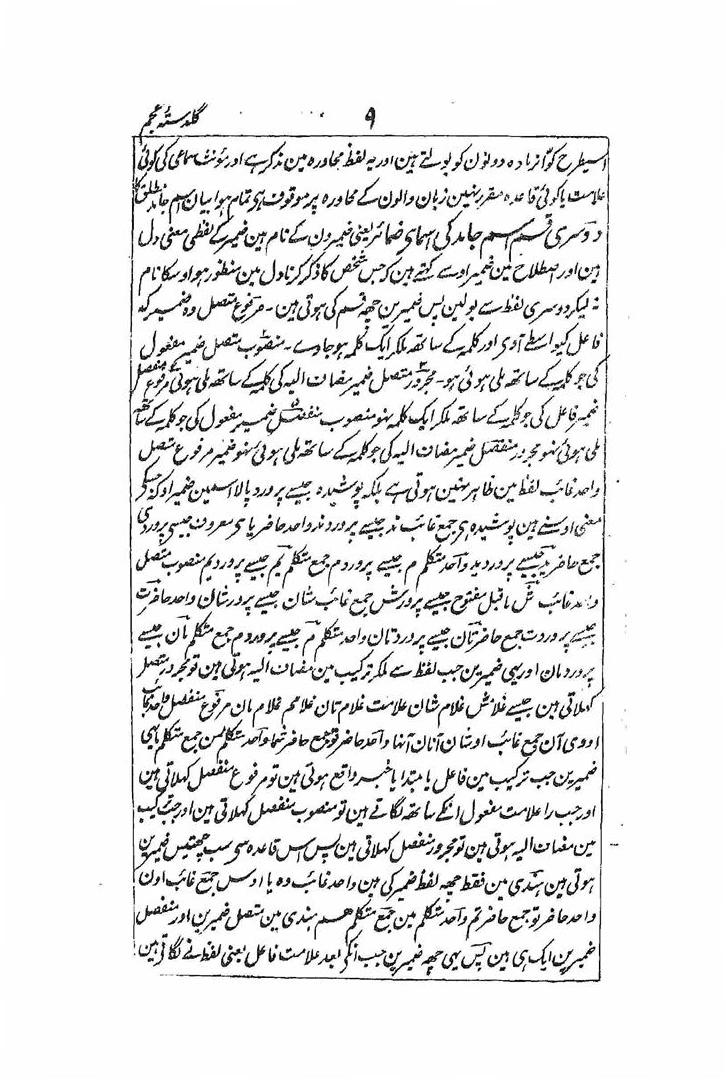 گلدستۂ عجم
۹
اسیطرح کو آنر یاده دونون کو بولتے هین اور یہ لفظ محاوره مین مذکر ہے اور مؤنث سماعی کی کوئی
علامت یا کوئی قاعده مقرر نہین زبان والون کے محاوره پر موقوف ہی تمام ہوا بیان اسم جامد مطلق کا
دوسری قسم اسم جامد کی اسمای ضمائر یعنی ضمیرون کے نام هین ضمیر کے لفظی معنی دل
هین اور اصطلاح مین ضمیر اوسے کہتے هین کہ جس شخص کا ذکر کرنا دل مین منظور هو اوسکا نام
نہ لیکر دوسری لفظ سے بولین پس ضمیرین چھہ قسم کی ہوتی هین ۔ مرفوع متصل وه ضمیر کہ
فاعل کیواسطے آوی اور کلمہ کے ساتھ ملکر ایک کلمہ ہو جاوے ۔ منصوب متصل ضمیر مفعول
کی جو کلمہ کے ساتھ ملی ہوئی ہو ۔ مجرور متصل ضمیر مضاف الیہ کی کلمہ کے ساتھ ملی ہوئی مرفوع منفصل
ضمیر فاعل کی جو کلمہ کے ساتھ ملکر ایک کلمہ نہو منصوب منفصل ضمیر مفعول کی جو کلمہ کے ساتھ
ملی ہوئی نہو مجرور منفصل ضمیر مضاف الیہ کی جو کلمہ کے ساتھ ملی ہوئی نہو ضمیر مرفوع متصل
واحد غائب لفظ مین ظاہر نہین ہوتی ہے بلکہ پوشیده جیسے پرورد پالا اسمین ضمیر او کہ جسکی
معنی اوسنے هین پوشیده ہی جمع غائب ند جیسے پروردند واحد حاضر یای معروف جیسی پروردی
جمع حاضر ید جیسے پروردید واحد متکلم م جیسے پروردم جمع متکلم یم جیسے پروردیم منصوب متصل
واحد غائب ش ماقبل مفتوح جیسے پرورش جمع غائب شان جیسے پرورشان واحد حاضر ت
جیسے پروردت جمع حاضر تان جیسے پروردتان واحد متکلم م جیسے پروردم جمع متکلم مان جیسے
پروردمان اور یہی ضمیرین جب لفظ سے ملکر ترکیب مین مضاف الیہ ہوتی هین تو مجرور متصل
کہلاتی هین جیسے غلامش غلام شان غلامت غلام تان غلامم غلام مان مرفوع منفصل واحد غائب
او وی آن جمع غائب اوشان آنان آنہا واحد حاضر تو جمع حاضر شما واحد متکلم من جمع متکلم ما یہی
ضمیرین جب ترکیب مین فاعل یا مبتدا یا خبر واقع ہوتی هین تو مرفوع منفصل کہلاتی هین
اور جب را علامت مفعول انکے ساتھ لگاتے هین تو منصوب منفصل کہلاتی هین اور جب ترکیب
مین مضاف الیہ ہوتی هین تو مجرور منفصل کہلاتی هین پس اس قاعده سی سب چھتیس ضمیرین
ہوتی هین ہندی مین فقط چھہ لفظ ضمیر کی هین واحد غائب وه یا اوس جمع غائب اون
واحد حاضر تو جمع حاضر تم واحد متکلم مین جمع متکلم هم ہندی مین متصل ضمیرین اور منفصل
ضمیرین ایک ہی هین پس یہی چھہ ضمیرین جب انکی بعد علامت فاعل یعنی لفظ نے لگاتی هین